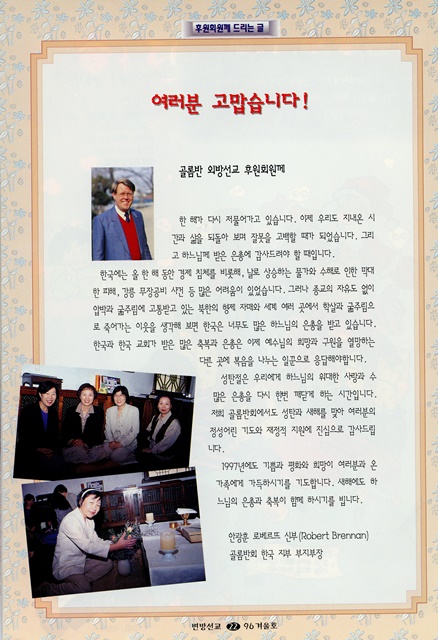 후원회원께 드리는 글
여러분 고맙습니다!
골롬반 외방선교 후원회원께
한 해가 다시 저물어가고 있습니다. 이제 우리도 지내온 시
간과 삶을 되돌아 보며 잘못을 고백할 때가 되었습니다. 그리
고 하느님께 받은 은총에 감사드려야 할 때입니다.
한국에는 올 한 해 동안 경제 침체를 비롯해, 날로 상승하는 물가와 수해로 인한 막대
한 피해, 강릉 무장공비 사건 등 많은 어려움이 있었습니다. 그러나 종교의 자유도 없이
압박과 굶주림에 고통받고 있는 북한의 형제 자매와 세계 여러 곳에서 학살과 굶주림으
로 죽어가는 이웃을 생각해 보면 한국은 너무도 많은 하느님의 은총을 받고 있습니다.
한국과 한국 교회가 받은 많은 축복과 은총은 이제 예수님의 희망과 구원을 열망하는
다른 곳에 복음을 나누는 일꾼으로 응답해야합니다.
성탄절은 우리에게 하느님의 위대한 사랑과 수
많은 은총을 다시 한번 깨닫게 하는 시간입니다.
저희 골롬반회에서도 성탄과 새해를 맞아 여러분의
정성어린 기도와 재정적 지원에 진심으로 감사드립
니다.
1997년에도 기쁨과 평화와 희망이 여러분과 온
가족에게 가득하시기를 기도합니다. 새해에도 하
느님의 은총과 축복이 함께 하시기를 빕니다.
안광훈 로베르또 신부(Robert Brennan)
골롬반회 한국 지부 부지부장
변방선교 22 96겨울호